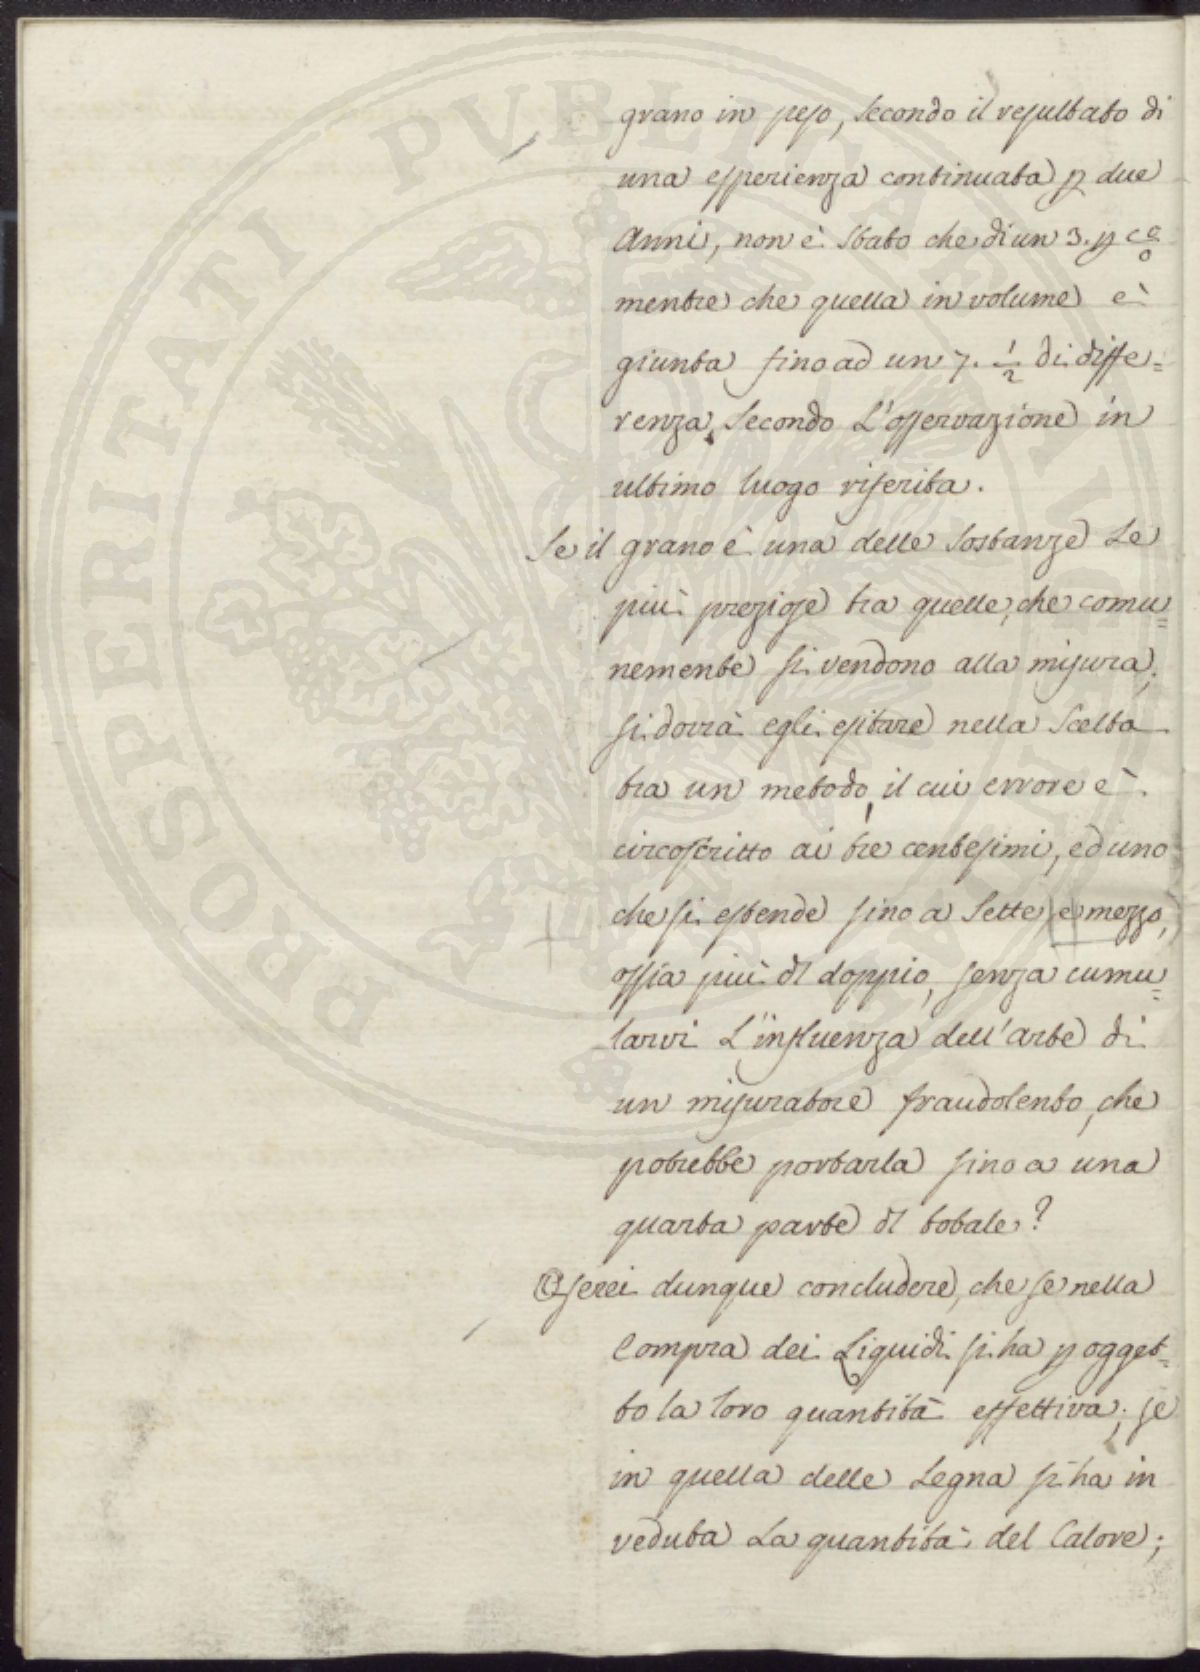 grano in peso, secondo il resultato di
una esperienza continuata p due
Anni, non è stato che di un 3. p c.o
mentre che quella in volume è
giunta fino ad un 7. 1/2 di diffe=
renza, secondo L'osservazione in
ultimo luogo riferita.
Se il grano è una delle sostanze Le
più preziose tra quelle, che comu=
nemente si vendono alla misura;
si dovrà egli esitare nella Scelta
tra un metodo, il cui errore è
circoscritto ai tre centesimi, ed uno
che si estende fino a Sette e mezzo,
ossia più dl doppio, senza cumu=
larvi L'influenza dell'arte di
un misuratore fraudolento, che
potrebbe portarla fino a una
quarta parte dl totale?
Oserei dunque concludere, che se nella
Compra dei Liquidi si ha p ogget=
to la loro quantità effettiva; se
in quella delle Legna si ha in
veduta La quantità del Calore;
PROSPERITATI PVBLICAE